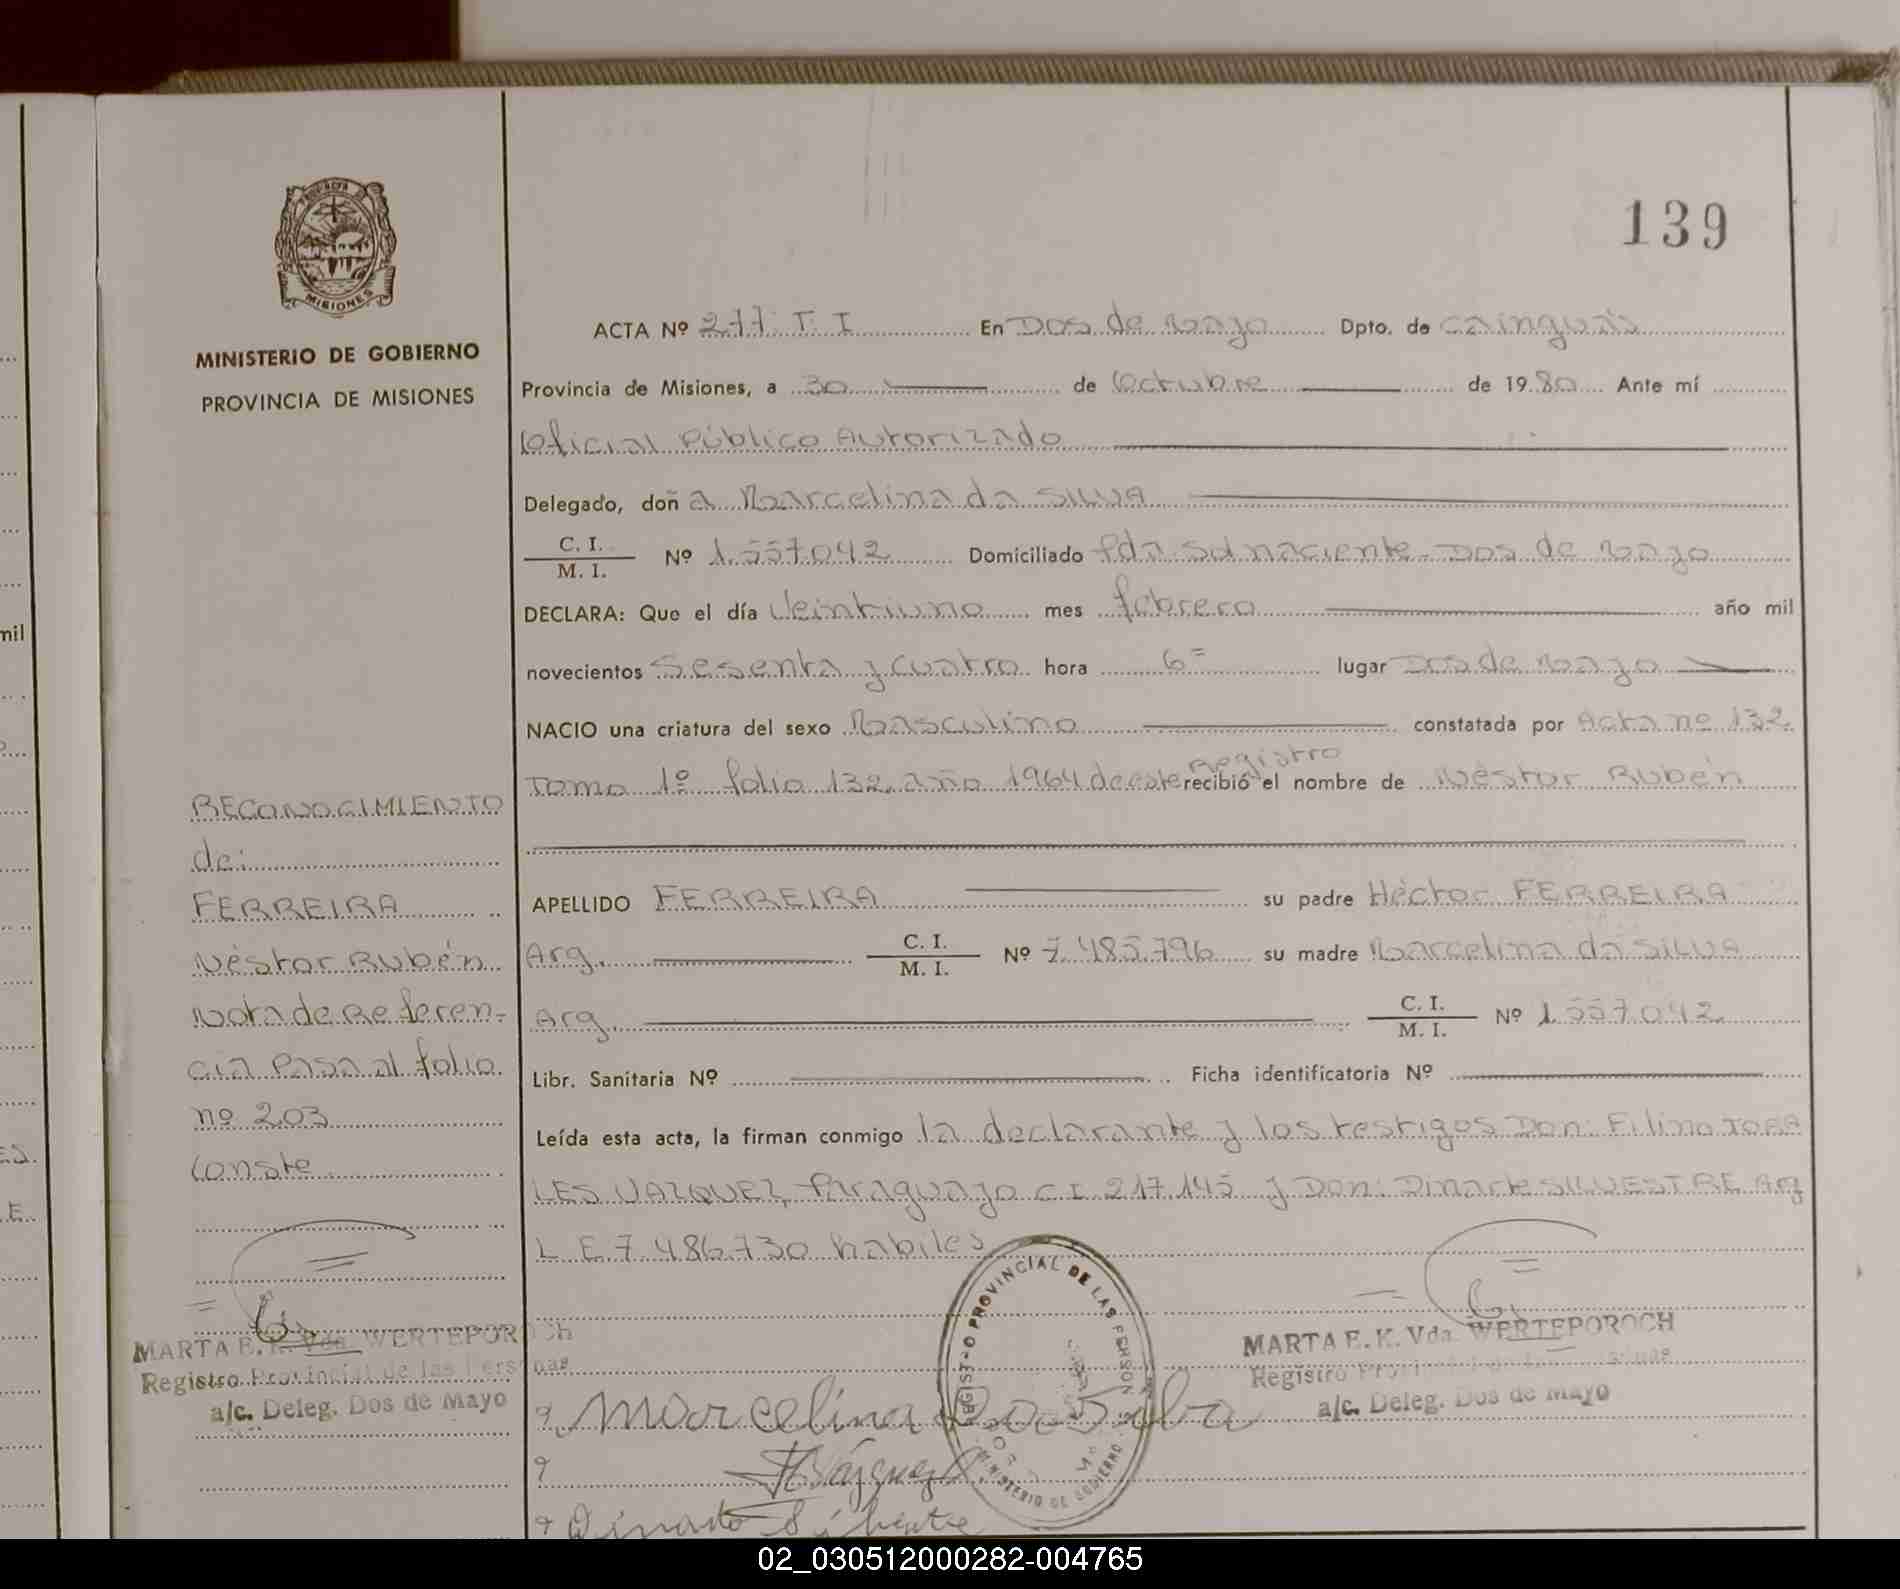 139
PROVINCIA DE
MISIONES
MINISTERIO DE GOBIERNO
PROVINCIA DE MISIONES
ACTA Nº 277 T. I En Dos de Mayo Dpto. de Cainguás
Provincia de Misiones, a 30 de Octubre de 1980 Ante mí
Oficial Público Autorizado
Delegado, doña Marcelina da SILVA
C. I.
M. I. Nº 1.557.042 Domiciliado Pda. Sol naciente - Dos de Mayo
DECLARA: Que el día Veintiuno mes febrero año mil
novecientos Sesenta y cuatro hora 6= lugar Dos de Mayo
NACIO una criatura del sexo Masculino constatada por Acta nº 132
Tomo 1º folio 132 año 1964 de este Registro recibió el nombre de Néstor Rubén
APELLIDO FERREIRA su padre Héctor FERREIRA
Arg. C. I.
M. I. Nº 7.485.796 su madre Marcelina da SILVA
Arg. C. I.
M. I. Nº 1.557.042
Libr. Sanitaria Nº Ficha identificatoria Nº
Leída esta acta, la firman conmigo la declarante y los testigos Don: Filimo
LES VAZQUEZ, Paraguayo C I 217.145 y Don: Dinarte SILVESTRE Arg
L E 7.486.730 habiles
RECONOCIMIENTO
de:
FERREIRA
Néstor Rubén
Nota de Referen-
cia Pasa al folio
nº 203
Conste
MARTA E. K. Vda. WERTEPOROCH
Registro Provincial de las Personas
a/c. Deleg. Dos de Mayo
MARTA E. K. Vda. WERTEPOROCH
Registro Provincial de las Personas
a/c. Deleg. Dos de Mayo
REGISTRO PROVINCIAL DE LAS PERSONAS
MINISTERIO DE GOBIERNO
Marcelina Da Silva
Vázquez
mil
02_030512000282-004765